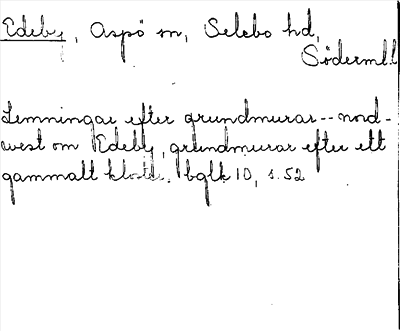 Edeby, Aspö sn, Selebo hd,
Södermll
Lemningar efter grundmurar -- nord-
west om Edeby, grundmurar efter ett
gammalt kloster. bglk 10, s. 52